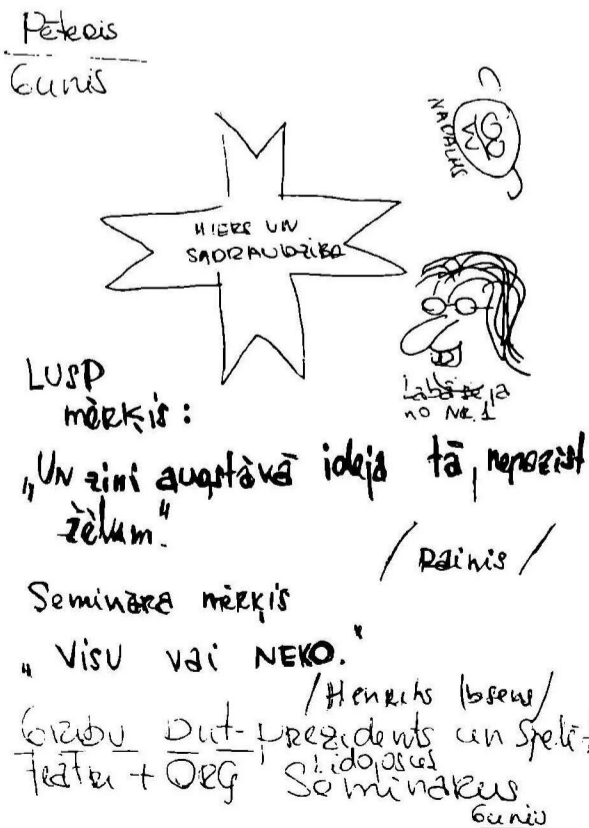 Pēteris
Gunis
NADALHS
MIERS UN
SADRAUDZĪBA
Labā seja
no NR. 1
LUSP
mērķis:
„UN zini augstāvā ideja tā, nepazīst
žēlum."
/ Rainis /
Semināra mērķis
„Visu vai NEKO."
/Henriks Ibsens/
Gribu būt prezidents un Spēlēt
teātri + ORG Lidojošus
Seminārus
Gunis